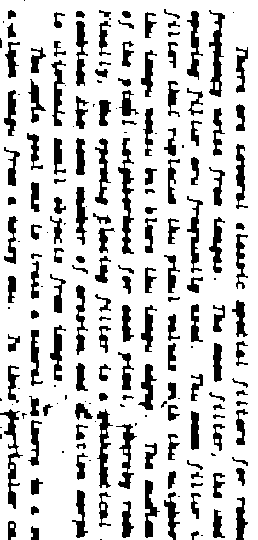 There are several classic spatial filters for
frequency noise from images. The mean filter, the
opening filter are frequently used. The mean filter
filter that replaces the pixel values with the neighbor
the image noise but blurs the image edges. The
of the pixel neighborhood for each pixel, thereby
Finally, the opening closing filter is a mathematical
combines the same number of erosion and dilation morph
to eliminate small objects from images.
The main goal was to train a neural network in a
image from a noisy one. In this particular